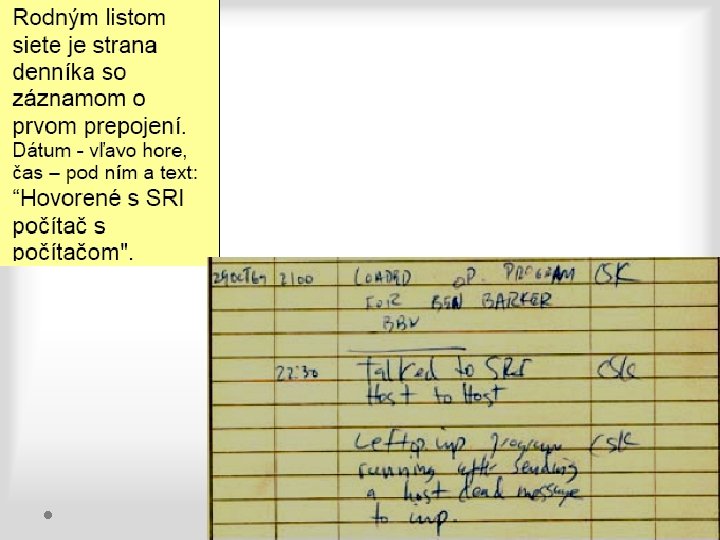 Rodným listom
siete je strana
denníka so
záznamom o
prvom prepojení.
Dátum - vľavo hore,
čas – pod ním a text:
“Hovorené s SRI
počítač s
počítačom".
29 OCT 69 2100 LOADED OP. PROGRAM CSK
FOR BEN BARKER
BBN
22:30 Talked to SRI CSK
Host to Host
Left op. imp program CSK
running after sending
a host dead message
to imp.